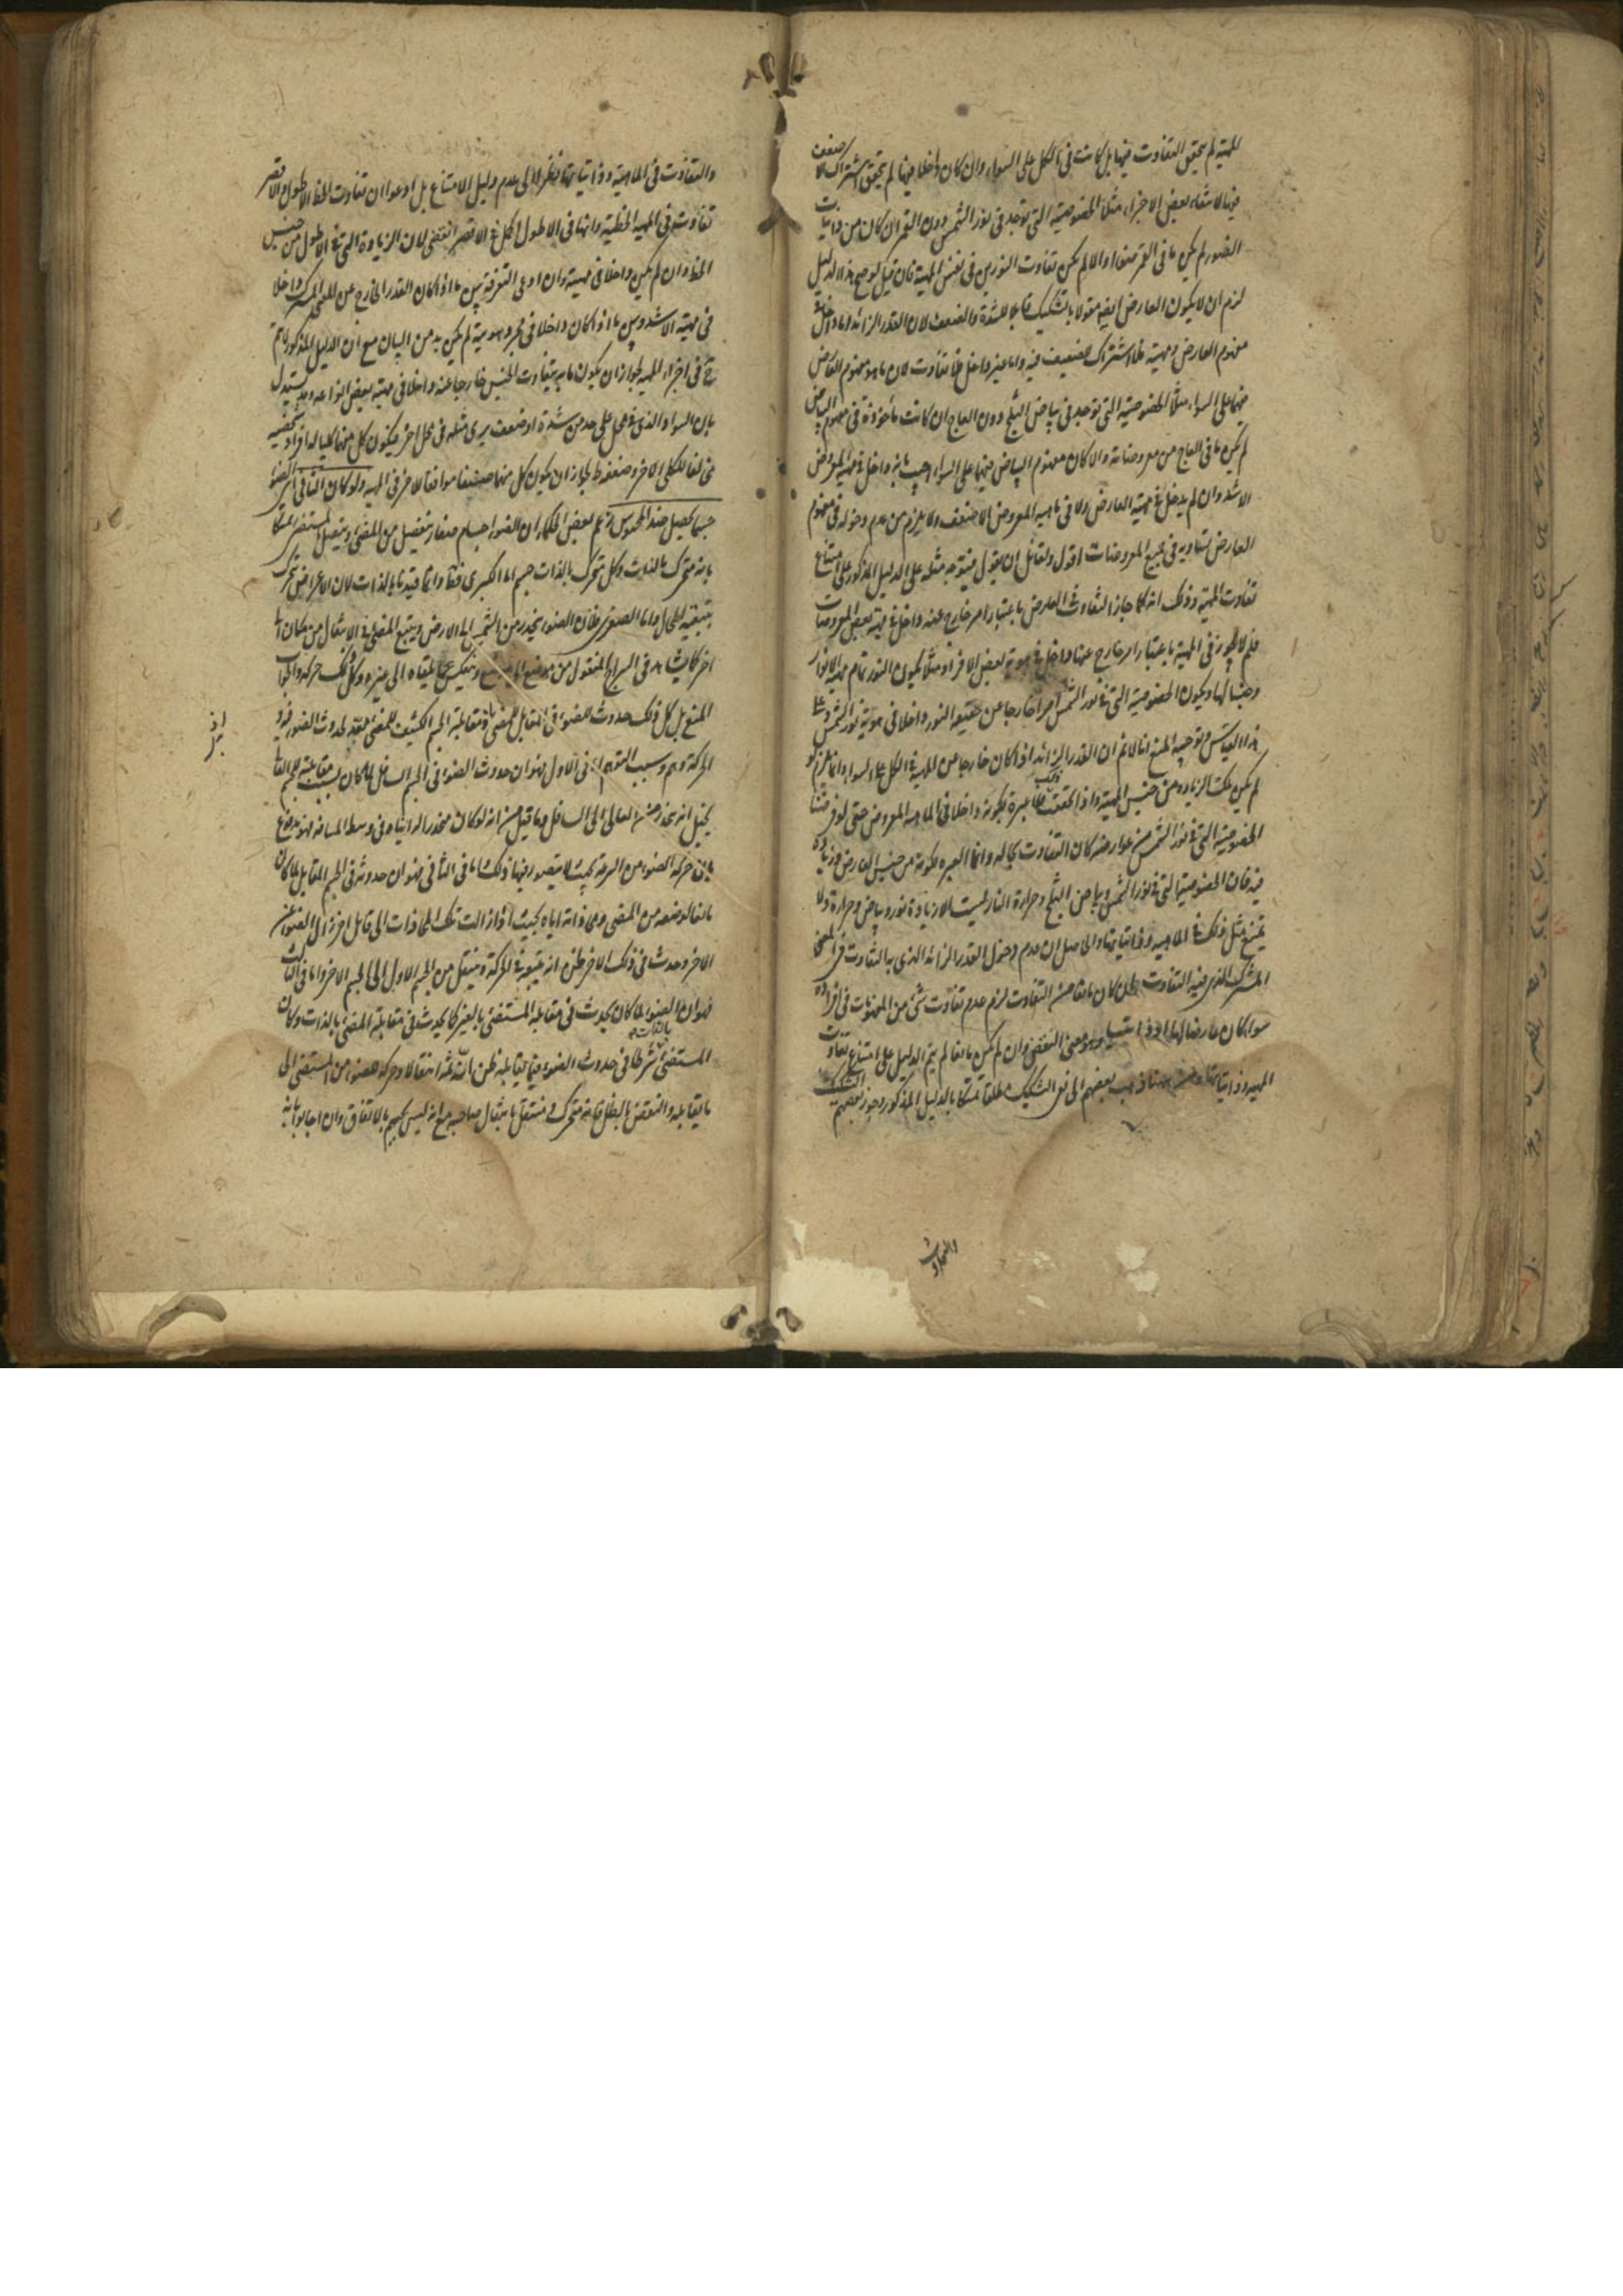 المهية لم يتحقق التفاوت فيها بل كانت في الكل على السواء وان كان داخلا فيها لم يتحقق اشتراك الاضعف
فيها لانتفاء بعض الاجزاء مثلا الخصوصية التي توجد في نور الشمس دون القمر ان كان من ذاتيات
الضوء لم يكن ما في القمر ضوءا والا لم يكن تفاوت النورين في نفس المهية فان قيل لو صح هذا الدليل
لزم ان لا يكون العارض ايضا مقولا بالتشكيك قابلا للشدة والضعف لان القدر الزائد اما داخل في
مفهوم العارض ومهيته فلا اشتراك للضعيف فيه واما غير داخل فلا تفاوت لان ما هو مفهوم العارض
فيهما على السواء مثلا الخصوصية التي توجد في بياض الثلج دون العاج ان كانت مأخوذة في مفهوم البياض
لم يكن ما في العاج من معروضاته والا كان مفهوم البياض فيهما على السواء اجيب بانه داخل في مهية المعروض
الاشد وان لم يدخل في مهية العارض ولا في ماهية المعروض الاضعف ولا يلزم من عدم دخوله في مفهوم
العارض تساويه في جميع المعروضات اقول ولقائل ان يقول فيتوجه مثله على الدليل المذكور على امتناع
تفاوت المهية وذلك انه كما جاز التفاوت العارض باعتبار امر خارج عنه داخل في مهية بعض المعروضات
فلم لا يجوز في المهية باعتبار امر خارج عنها داخل في هوية بعض الافراد مثلا يكون النور تمام مهية الانوار
وجنسا لها ويكون الخصوصية التي في نور الشمس امرا خارجا عن حقيقة النور داخلا في هوية نور الشمس وعلى
هذا القياس وتوجيه المنع انا لا نم ان القدر الزائد اذا كان خارجا عن المهية في الكل على السواء وانما يلزم لو
لم يكن تلك الزيادة من جنس المهية واذا تحققت فلا عبرة بكونه داخلا في الماهية المعروض حتى لو فرضنا
الخصوصية التي في نور الشمس من عوارضه كان التفاوت بحاله وانما العبرة بكونه من جنس العارض وزيادة
فيه فان الخصوصية التي في نور الشمس وبياض الثلج وحرارة النار ليست الا زيادة نور وبياض وحرارة ولا
يمتنع مثل ذلك في الماهية وذاتياتها والحاصل ان عدم دخول القدر الزائد الذي به التفاوت في المعنى
المشترك الذي فيه التفاوت ان كان مانعا من التفاوت لزم عدم تفاوت شئ من المفهومات في افراده
سواء كان عارضا لها او ذاتيا وهو معنى النقض وان لم يكن مانعا لم يتم الدليل على امتناع تفاوت
المهية وذاتياتها ومن ههنا ذهب بعضهم الى نفي التشكيك مطلقا متمسكا بالدليل المذكور وجوز بعضهم التشكيك
والتفاوت
والتفاوت في الماهية وذاتياتها نظرا الى عدم دليل الامتناع بل ادعوا ان تفاوت الخط الاطول والاقصر
تفاوت في المهية الخطية وانها في الاطول اكمل في الاقصر انقضى لان الزيادة التي في الاطول من جنس
الخط وان لم يكن داخلا في مهيته وان ادعى التفرقة بين ما اذا كان القدر الخارج عن المشترك داخلا
في مهية الاشد وبين ما اذا كان داخلا في مجرد هويته لم يكن بد من البيان مع ان الدليل المذكور لا يتم
في اجزاء المهية لجواز ان يكون ما به يتفاوت الجنس خارجا عنه داخلا في مهية بعض انواعه وقد يستدل
بان السواد الذي في محل على حد من شدة او ضعف يرى مثله في محل اخر فيكون كل منهما كليا له افراد شخصية
مخالفا للكلي الاخر وضعفه ط لجواز ان يكون كل منهما صنفا موافقا للاخر في المهية ولو كان الثاني اي الضوء
جسما يحصل ضد المحسوس زعم بعض الحكماء ان الضوء اجسام صغار تنفصل من المضئ وتتصل بالمستضئ متمسكا
بانه متحرك بالذات وكل متحرك بالذات جسم اما الكبرى فظ وانما قيدنا بالذات لان الاعراض تتحرك
بتبعية المحال واما الصغرى فلان الضوء ينحدر من الشمس الى الارض ويتبع المضئ في الانتقال من مكان الى
اخر كما يشاهد في السراج المنقول من موضع الى موضع وينعكس عما يلقاه الى غيره وكل ذلك حركة والجواب
المنع بل كل ذلك حدوث للضوء في المقابل للمضئ او مقابلة الجسم الكثيف للمضئ معد لحدوث الضوء فيه و
اذ
الحركة وهم وسبب التوهم اما في الاول فهو ان حدوث الضوء في الجسم السافل لما كان بسبب مقابلته للجسم العالي
يخيل انه ينحدر من العالي الى السافل وما قيل من انه لو كان منحدرا لرايناه في وسط المسافة فهو مدفوع
بان حركة الضوء من السرعة بحيث لا يتصور فيها ذلك اما في الثاني فهو ان حدوثه في الجسم المقابل لما كان
تابعا لوضعه من المضئ ومحاذاته اياه بحيث اذا زالت تلك المحاذات الى قابل اخر زال الضوء عن
الاخر وحدث في ذلك الاخر ظن انه يتبعه في الحركة وينتقل من الجسم الاول الى الجسم الاخر واما في الثالث
فهو ان الضوء لما كان يحدث في مقابلة المستضئ بالغير كما يحدث في مقابلة المضئ بالذات وكان
المستضئ بالذات شرطا في حدوث الضوء فيما يقابله ظن ان ثمة انتقالا وحركة للضوء من المستضئ الى
ما يقابله والنقض بالظل فانه متحرك منتقل بانتقال صاحبه مع انه ليس بجسم بالاتفاق وان اجابوا بانه